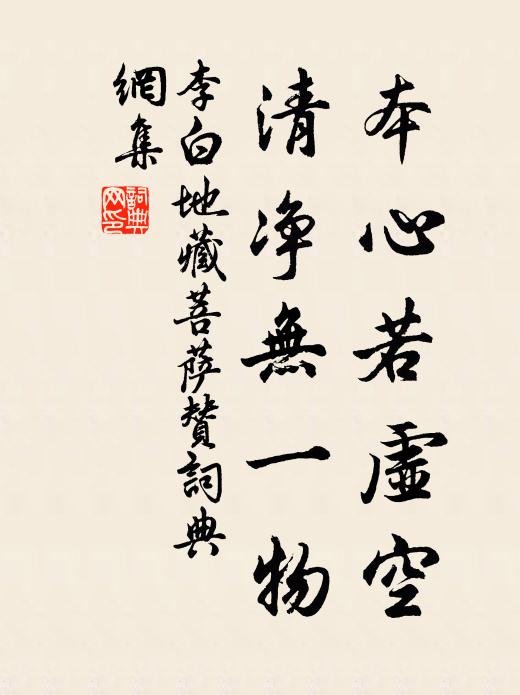 本心若虛空
清净無一物
李白地藏菩薩贊詞典
網集
詞典
网印